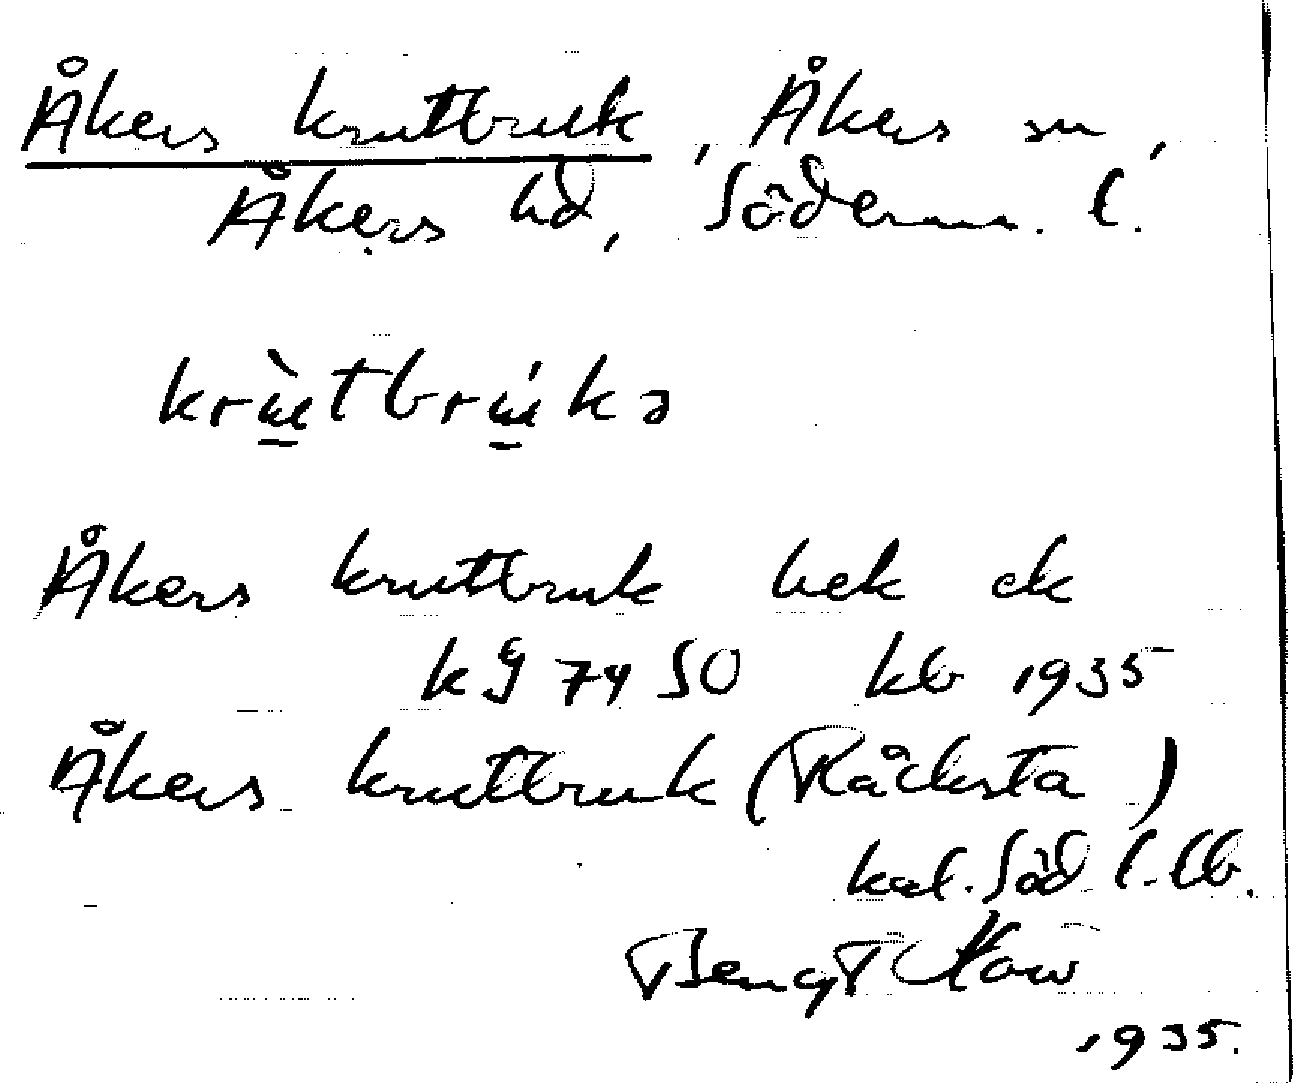 Åkers krutbruk, Åkers sn,
Åkers hd, Söderm. l.
krùtbrúkə
Åkers krutbruk hek ek
kg 74 50 kb 1935
Åkers krutbruk (Råcksta)
kal. Söd l. lb.
Bengt
1935.